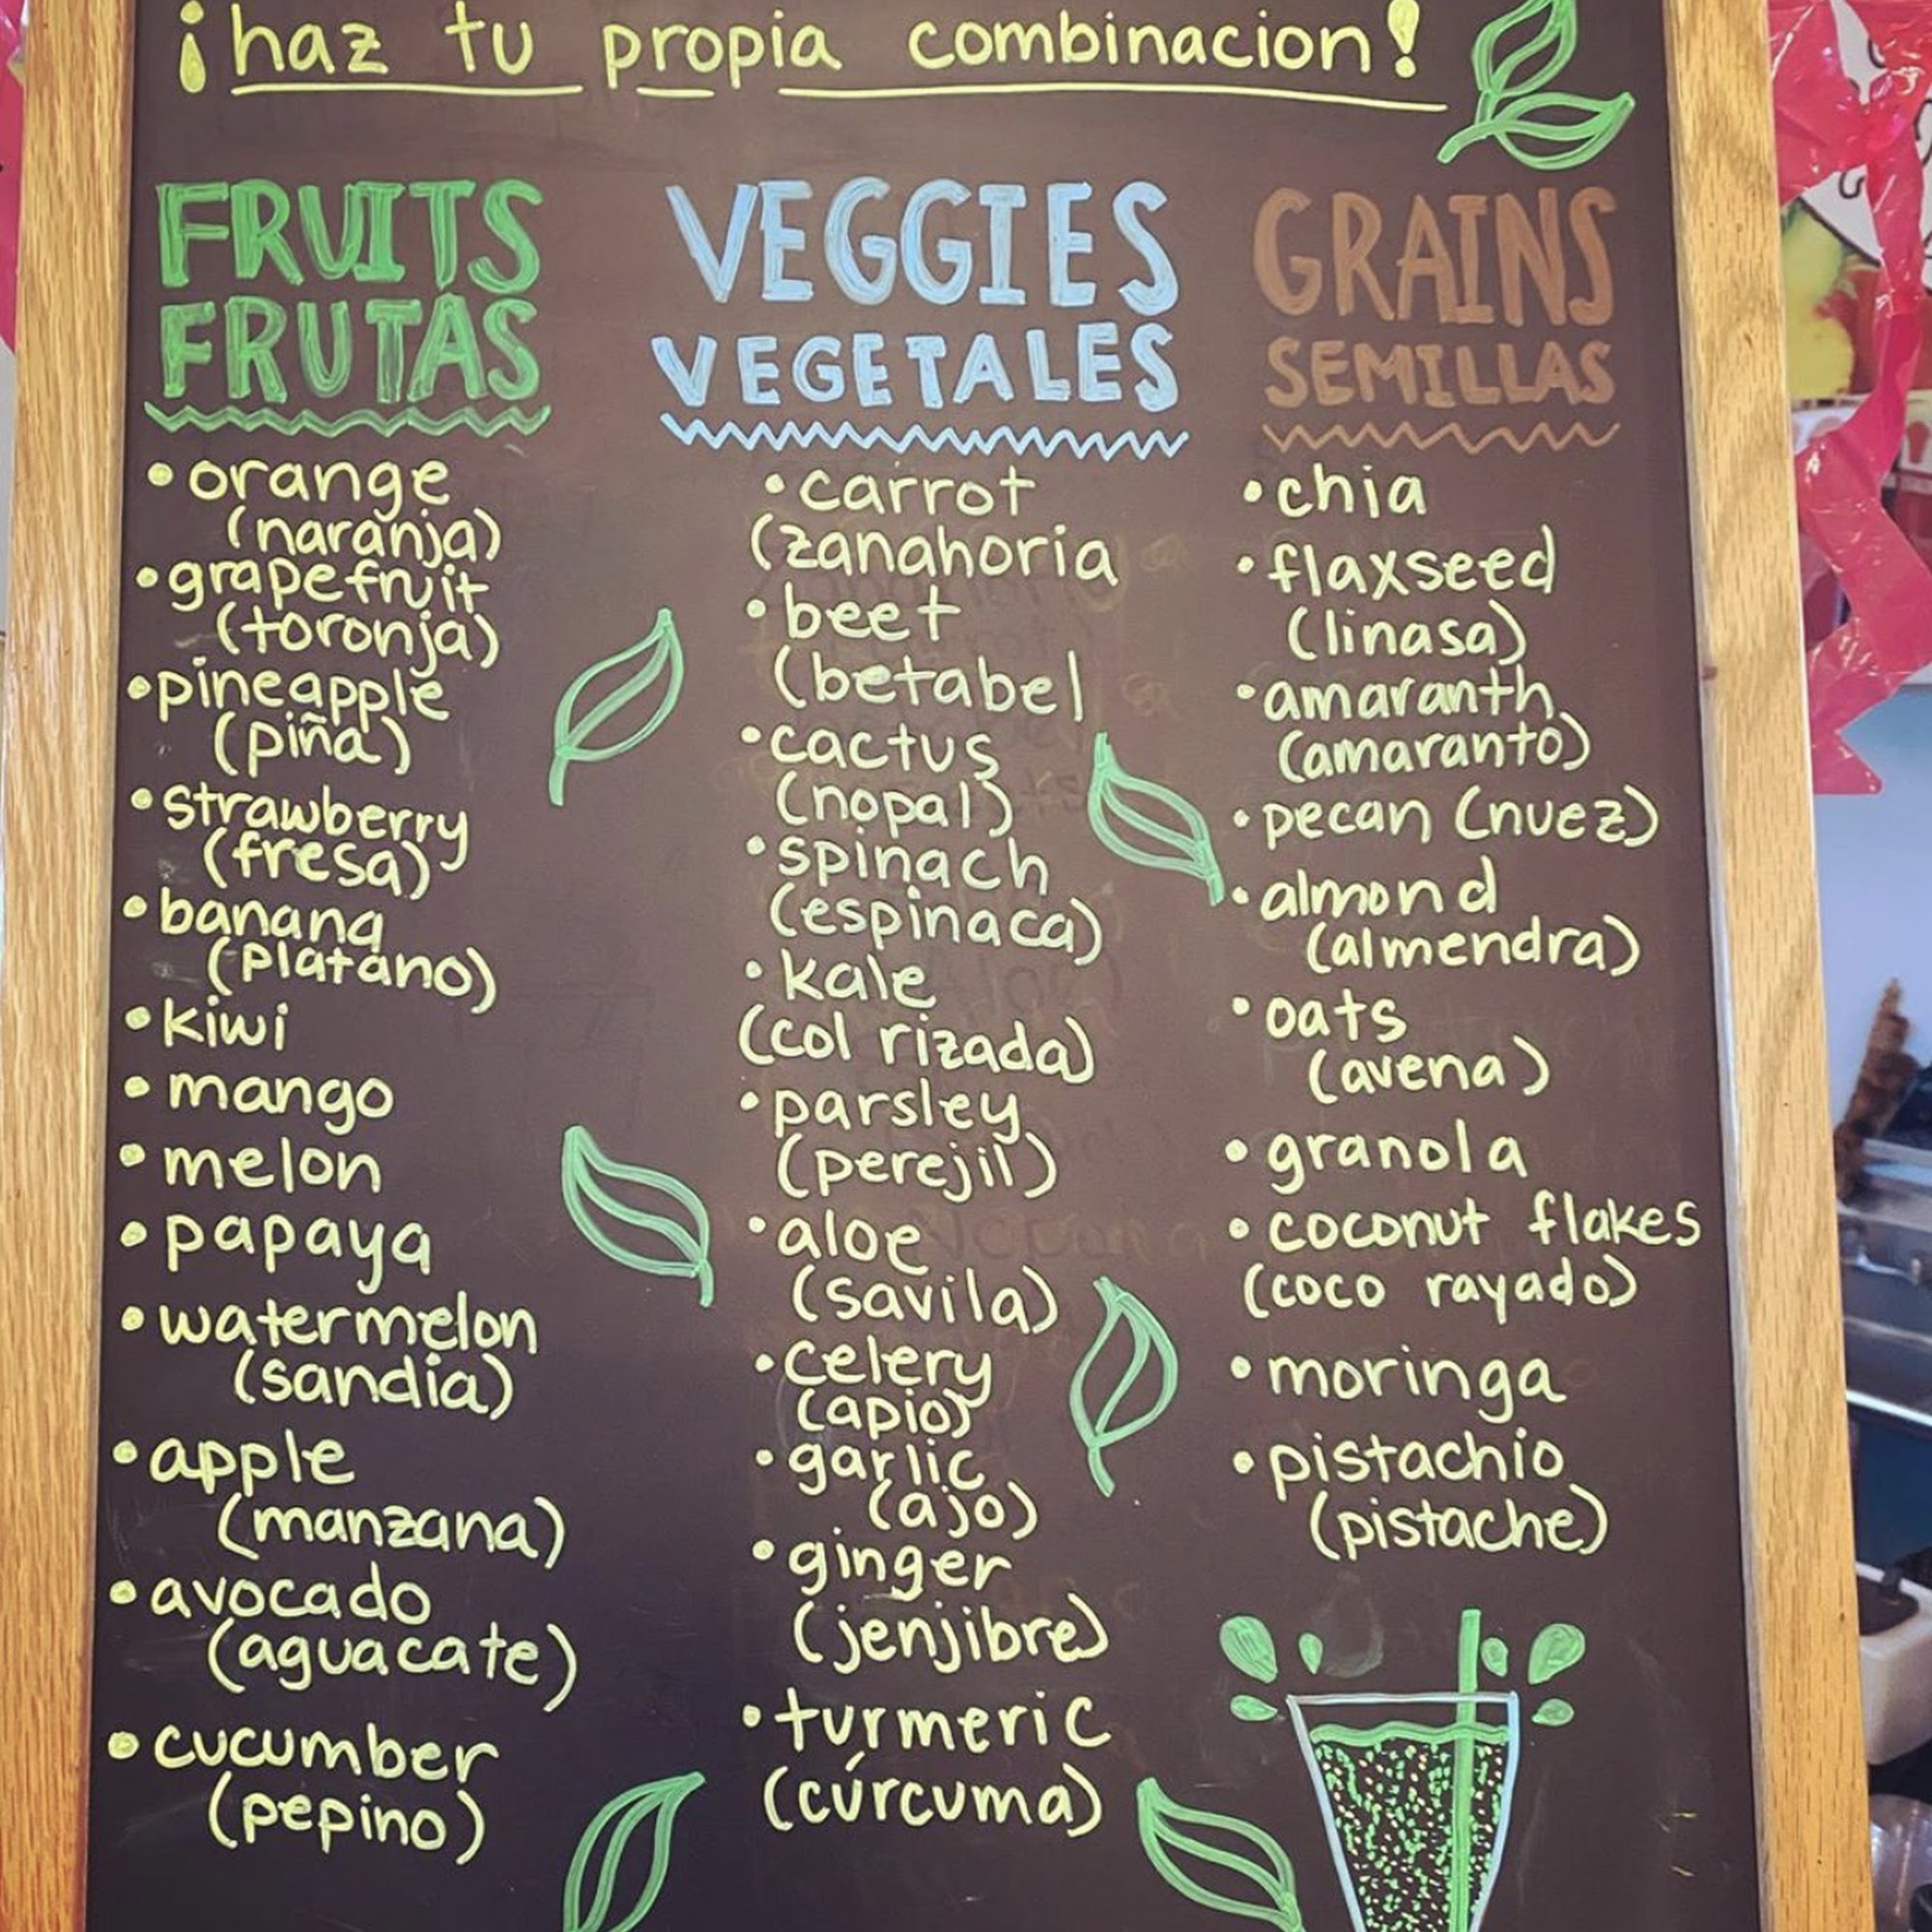 ¡haz tu propia combinacion!
FRUITS
FRUTAS
• orange
(naranja)
• grapefruit
(toronja)
• pineapple
(piña)
• strawberry
(fresa)
• banana
(platano)
• kiwi
• mango
• melon
• papaya
• watermelon
(sandia)
• apple
(manzana)
• avocado
(aguacate)
• cucumber
(pepino)
VEGGIES
VEGETALES
• carrot
(zanahoria
• beet
(betabel
• cactus
(nopal)
• spinach
(espinaca)
• kale
(col rizada)
• parsley
(perejil)
• aloe
(savila)
• celery
(apio)
• garlic
(ajo)
• ginger
(jenjibre)
• turmeric
(cúrcuma)
GRAINS
SEMILLAS
• chia
• flaxseed
(linasa)
• amaranth
(amaranto)
• pecan (nuez)
• almond
(almendra)
• oats
(avena)
• granola
• coconut flakes
(coco rayado)
• moringa
• pistachio
(pistache)